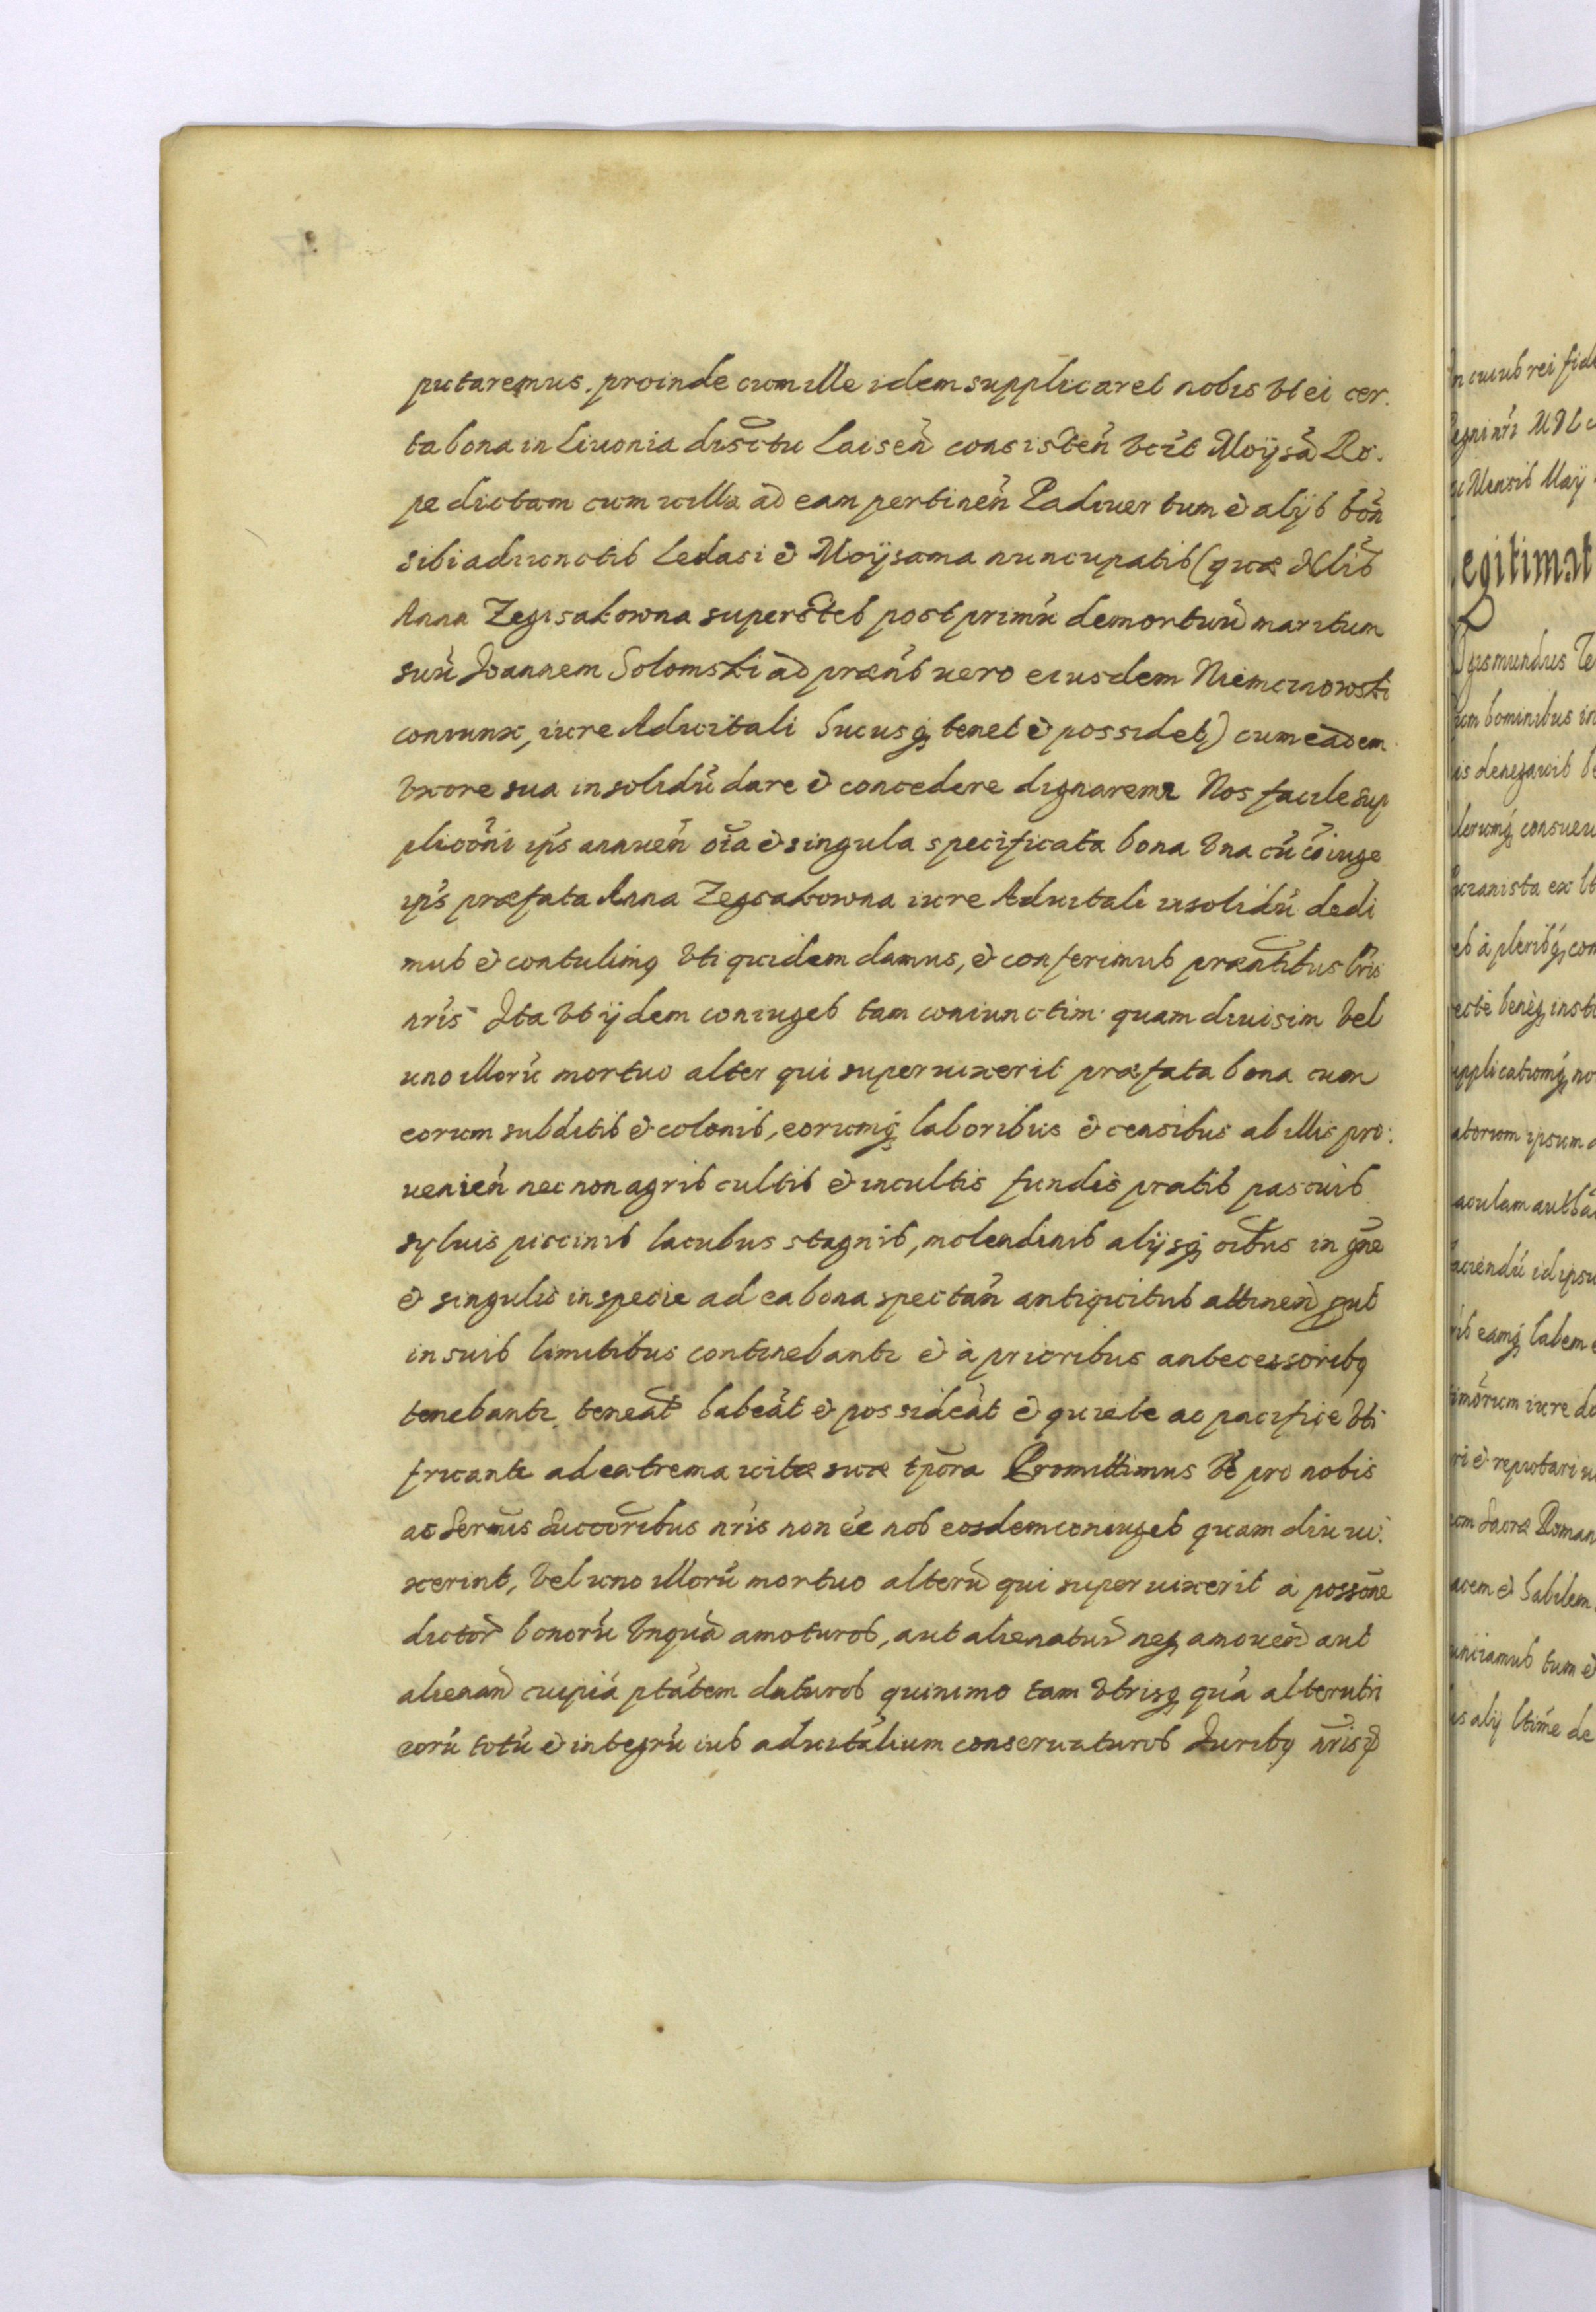 putaremus. proinde cum ille idem supplicaret nobis vt ei cer.
ta bona in Liuonia disctu Laisen̄ consisten̄ vczt Moÿsā Ro.
pe dictam cum uilla ad eam pertinen̄ Padiuer tum et alijs bōn
sibi adiunctis Ledasi et Moÿsama nuncupatis (quæ Nblis
Anna Zegisakowna superstes post primū demortuū maritum
suū Joannem Solomski ad præns uero eiusdem Niemczinowski
coniunx, iure Aduitali hucusq tenet et possidet) cum eadem
vxore sua insolidū dare et concedere dignaremr Nos facile sup
plicōni ips annuen̄ oīa et singula specificata bona vna cū cōiuge
ips præfata Anna Zegsakowna iure Aduitali insolidū dedi
mus et contulimq vti quidem damus, et conferimus præntibus lris
nris Ita vt ijdem coniuges tam coniunctim quam diuisim vel
uno illorū mortuo alter qui superuixerit præfata bona cum
eorum subditis et colonis, eorumq laboribus et censibus ab illis pro:
uenien̄ nec non agris cultis et incultis fundis pratis pascuis
syluis piscinis lacubus stagnis, molendinis alijsq oībus in gñe
et singulis in specie ad ea bona spectan̄ antiquitus attinen̄ put
in suis limitibus continebantr et à prioribus antecessoribq
tenebantr teneāt habeāt et possideāt et quiete ac pacifice vti
fruantr ad extrema uitæ suæ tpōra Promittimus vt pro nobis
ac sermis succōribus nris non ēe nos eosdem coniuges quam diu ui.
xerint, vel uno illorū mortuo alterū qui superuixerit à possōne
dictor bonorū vnquā amoturos, aut alienatur neq amouen̄ aut
alienan̄ cuipiā ptātem daturos quinimo tam vtrisq quā alterutri
eorū totū et integrū ius aduitālium conseruaturos Juribq nris

n cuius rei fid
egni nri MDL
Mensis Maÿ
egitimat
gismundus
um hominibus in
is denegauit
lerumq consueu
ex
à pleribq com
ectè benèq insti
upplicationiq no
atorum ipsum
aculam autho
aciendū id ipsu
eamq labem
imōrum iure
ri et reputari
um Sacræ Roman
acem et habilem
unciamus tum et
is alij ltime de